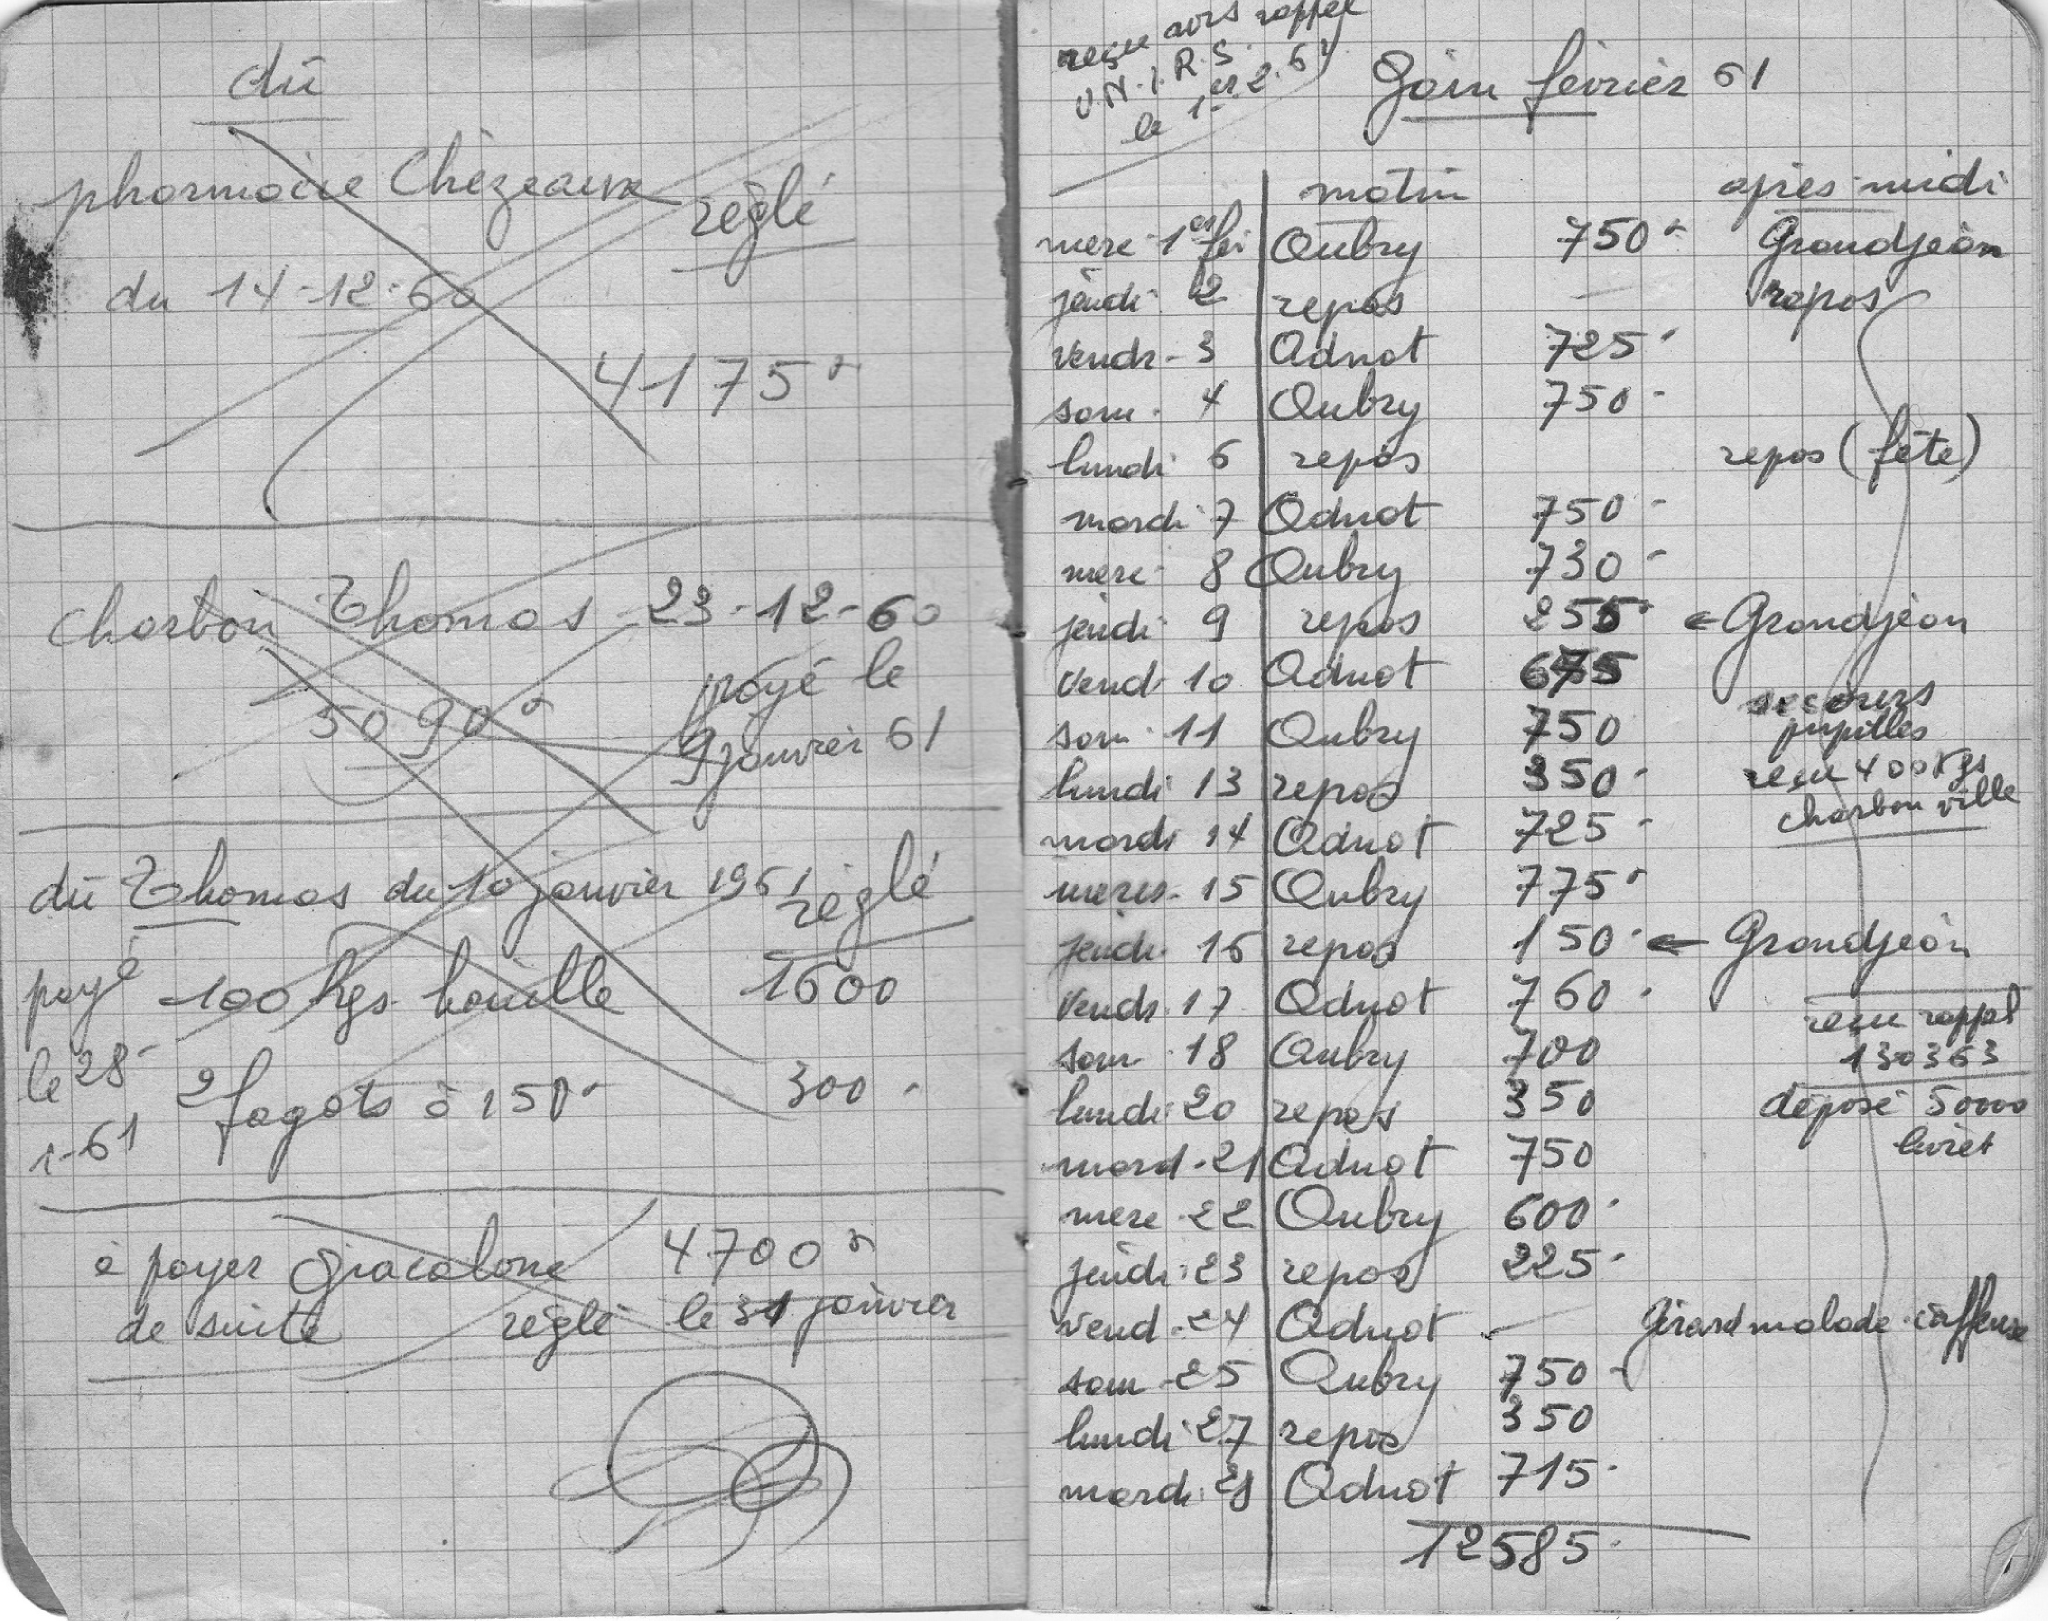 dû
pharmacie Chézeaux réglé
du 14-12-60
4175
charbon Thomas - 23-12-60
payé le
5090
9 janvier 61
dû Thomas du 10 janvier 1961 réglé
payé 100 kgs houille 1600
le 28 2 fagots à 150 300
1-61
à payer Giacalone 4700
de suite réglé le 31 janvier
reçu avis rappel
U.N.I.R.S.
le 1er 2.61
Gain février 61
matin après-midi
merc. 1er fév Aubry 750 Grandjean
jeudi 2 repos — repos
vendr. 3 Adnot 725
sam. 4 Aubry 750
lundi 6 repos repos (fête)
mardi 7 Adnot 750
merc. 8 Aubry 730
jeudi 9 repos 255 ← Grandjean
vend. 10 Adnot 675
secours
sam. 11 Aubry 750 pupilles
lundi 13 repos 350 reçu 400 Kgs
charbon ville
mardi 14 Adnot 725
mercr. 15 Aubry 775
jeudi 16 repos 150 ← Grandjean
vendr. 17 Adnot 760
reçu rappel
sam. 18 Aubry 700 130363
lundi 20 repos 350 déposé 50000
livret
mard. 21 Adnot 750
merc. 22 Aubry 600
jeudi 23 repos 225
vend. 24 Adnot — Gérard malade coiffeuse
sam. 25 Aubry 750
lundi 27 repos 350
mardi 28 Adnot 715
12585